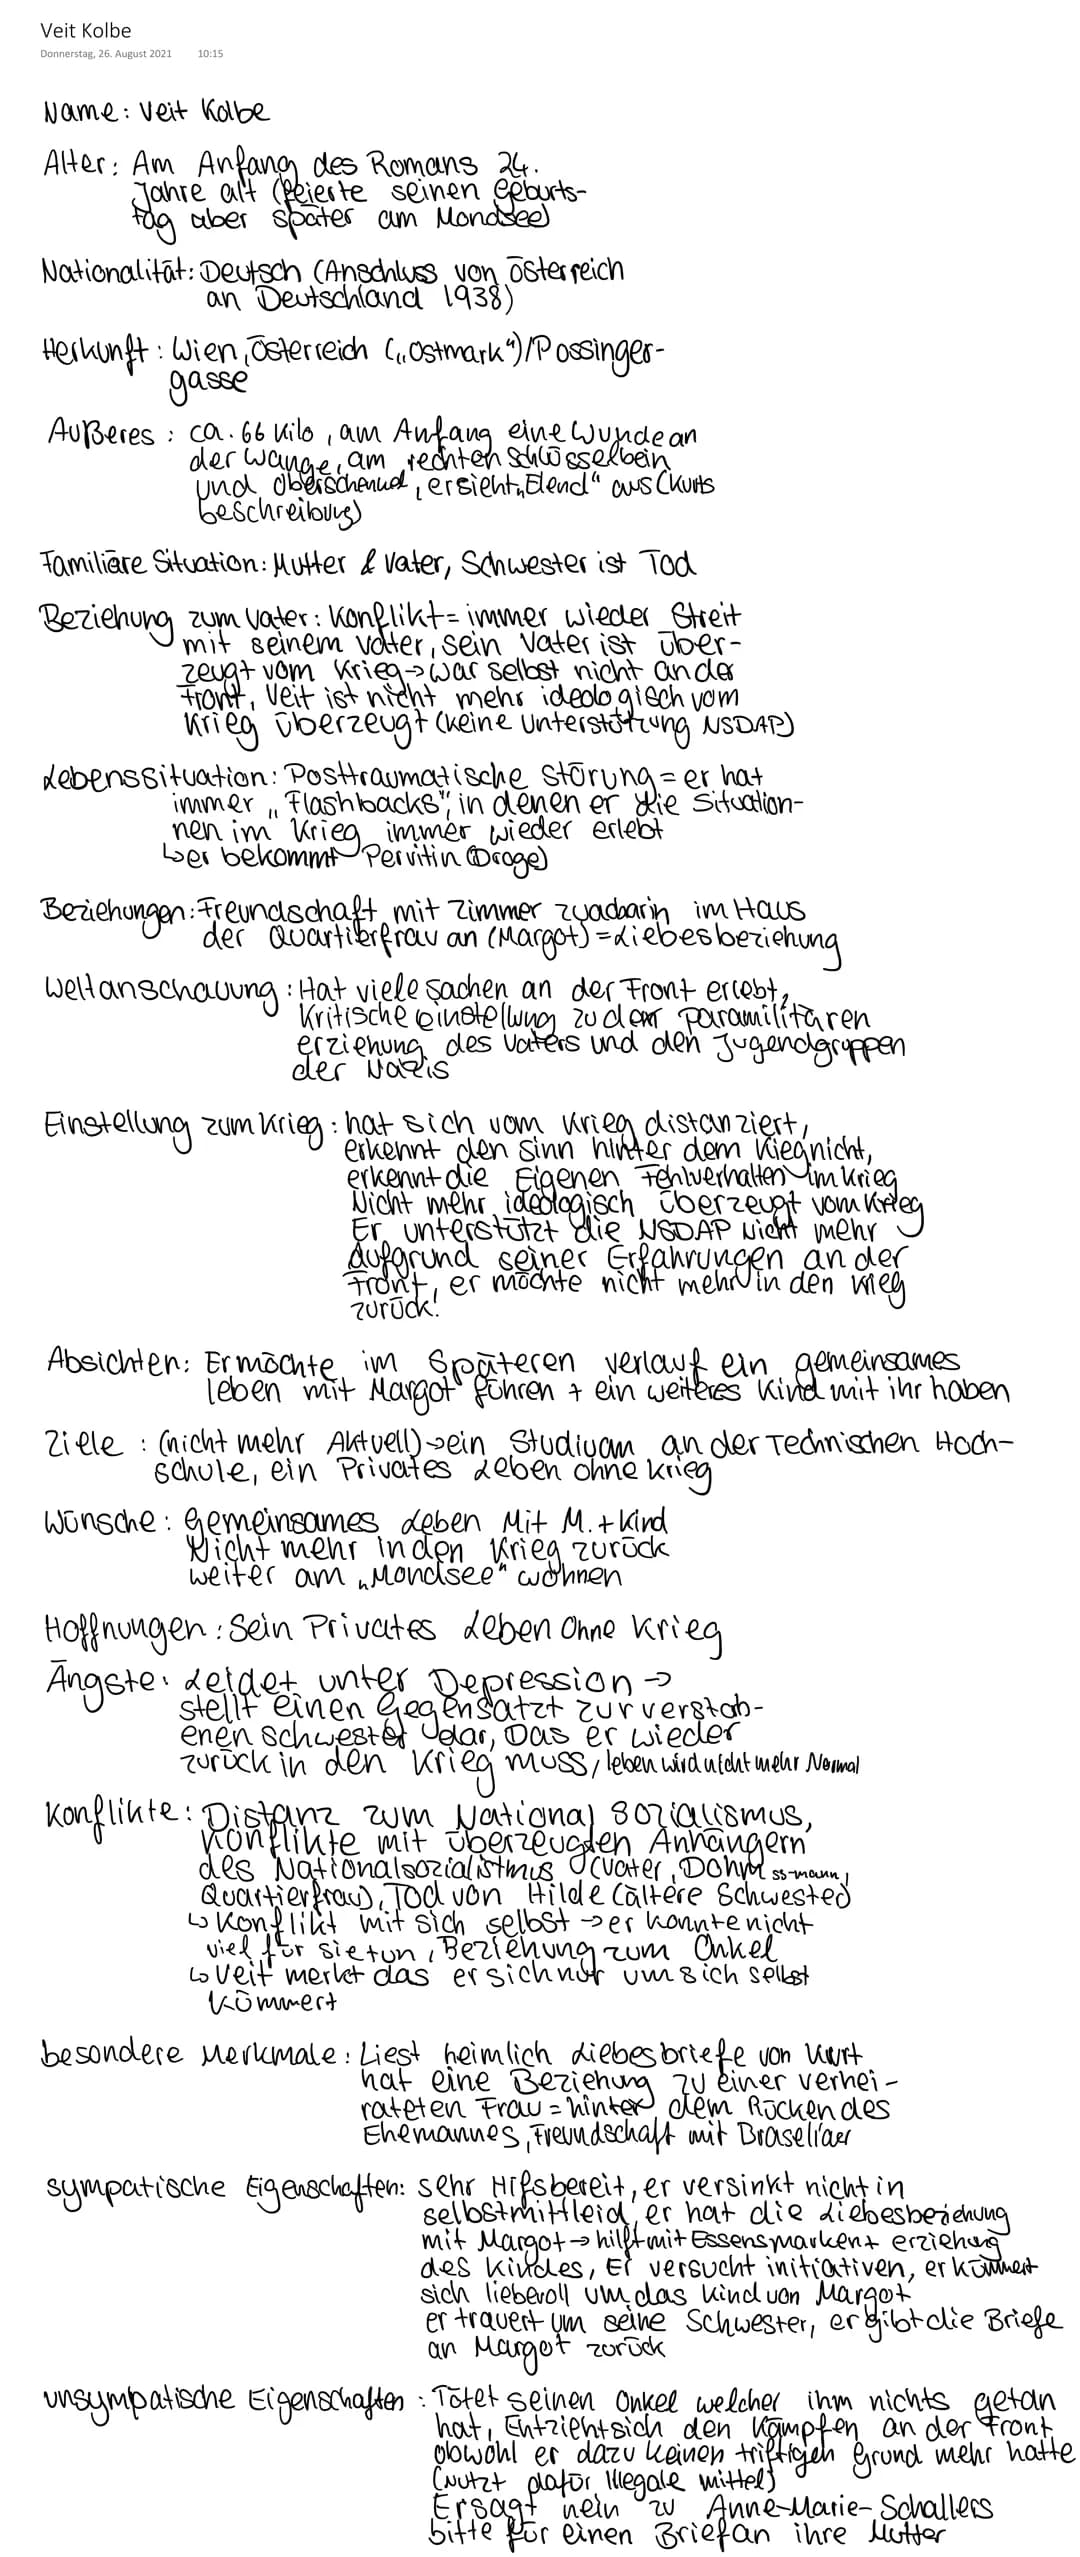 Veit Kolbe
Donnerstag, 26. August 2021 10:15
Name: Veit Kolbe
Alter: Am Anfang des Romans 24.
Jahre alt (feierte seinen Geburts-
tag aber später am Mondsee)
Nationalität: Deutsch (Anschluss von Österreich
an Deutschland 1938)
Herkunft: Wien, Österreich („Ostmark")/Possinger-
gasse
Äußeres: ca. 66 Kilo, am Anfang eine Wunde an
der Wange, am rechten Schlüsselbein
und Oberschenkel, er sieht „Elend" aus (Kurts
beschreibung)
Familiäre Situation: Mutter & Vater, Schwester ist Tod
Beziehung zum Vater: Konflikt = immer wieder Streit
mit seinem Vater, sein Vater ist über-
zeugt vom Krieg → war selbst nicht an der
Front, Veit ist nicht mehr ideologisch vom
Krieg überzeugt (keine Unterstützung NSDAP)
Lebenssituation: Posttraumatische Störung = er hat
immer „Flashbacks", in denen er die Situation-
nen im Krieg immer wieder erlebt
↳ er bekommt Pervitin (Droge)
Beziehungen: Freundschaft mit Zimmer im Haus
der Quartierfrau an (Margot) = Liebesbeziehung
Weltanschauung: Hat viele Sachen an der Front erlebt,
Kritische einstellung zu der paramilitären
erziehung des Vaters und den Jugendgruppen
der Nazis
Einstellung zum Krieg: hat sich vom Krieg distanziert,
erkennt den Sinn hinter dem Kieg nicht,
erkennt die Eigenen Fehlverhalten im Krieg
Nicht mehr ideologisch überzeugt vom Krieg
Er unterstützt die NSDAP nicht mehr
Aufgrund seiner Erfahrungen an der
Front, er möchte nicht mehr in den Krieg
zurück!
Absichten: Er möchte im Späteren verlauf ein gemeinsames
leben mit Margot führen + ein weiteres Kind mit ihr haben
Ziele: (nicht mehr Aktuell) → ein Studium an der Technischen Hoch-
schule, ein Privates Leben ohne Krieg
Wünsche: Gemeinsames Leben Mit M. + Kind
Nicht mehr in den Krieg zurück
weiter am „Mondsee" wohnen
Hoffnungen: Sein Privates Leben Ohne Krieg
Ängste: Leidet unter Depression →
stellt einen Gegensatzt zur verstob-
enen Schwester dar, Das er wieder
zurück in den Krieg muss, leben wird nicht mehr Normal
Konflikte: Distanz zum National sozialismus,
Konflikte mit überzeugden Anhängern
des Nationalsozialistmus (Vater, Dohm ss-mann,
Quartierfrau), Tod von Hilde (ältere Schwester)
↳ Konflikt mit sich selbst → er konnte nicht
viel für sie tun, Beziehung zum Onkel
↳ Veit merkt das er sich nur um sich selbst
kümmert
besondere Merkmale: Liest heimlich Liebesbriefe von Kurt
hat eine Beziehung zu einer verhei-
rateten Frau = hinter dem Rücken des
Ehemannes, Freundschaft mit
sympatische Eigenschaften: sehr Hifsbereit, er versinkt nicht in
selbstmittleid, er hat die Liebesbeziehung
mit Margot → hilft mit Essensmarken + erziehung
des Kindes, Er versucht initiativen, er kümmert
sich liebevoll um das Kind von Margot
er trauert um seine Schwester, er gibt die Briefe
an Margot zurück
unsympatische Eigenschaften: Tötet seinen Onkel welcher ihm nichts getan
hat, Entzieht sich den Kämpfen an der Front
obwohl er dazu keinen triftigen Grund mehr hatte
(nutzt dafür Illegale mittel)
Er sagt nein zu Anne-Marie-Schallers
bitte für einen Brief an ihre Mutter